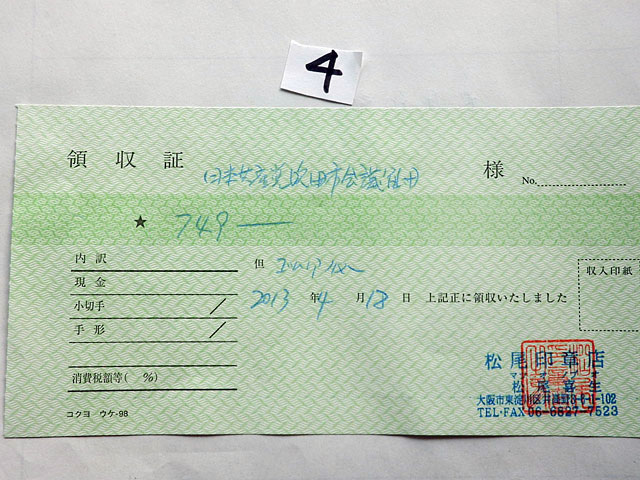 4
領収証 日本共産党吹田市会議員団 様
No.
★ 749―
内訳
現金
小切手
手形
消費税額等( %)
コクヨ ウケ-98
但
2013年4月18日 上記正に領収いたしました
収入印紙
松尾印章店
松尾喜生
大阪市東淀川区
TEL・FAX 06-6827-7523